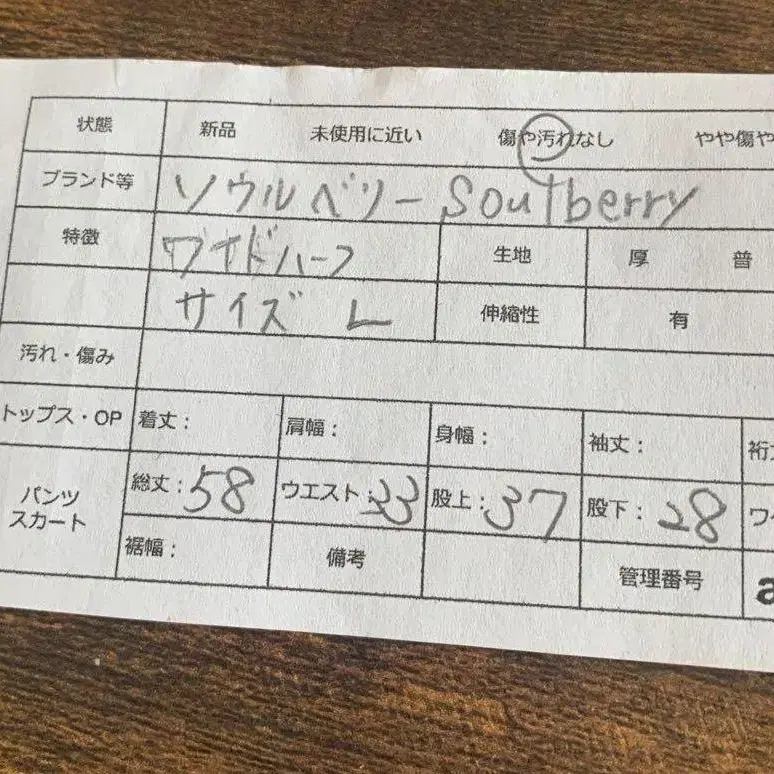 状態 新品 未使用に近い 傷や汚れなし やや傷や
ブランド等 ソウルベリー Soulberry
特徴 ワイドハーフ 生地 厚 普
サイズ L 伸縮性 有
汚れ・傷み
トップス・OP 着丈: 肩幅: 身幅: 袖丈: 裄
パンツ スカート 総丈:58 ウエスト:33 股上:37 股下:28 ワ
裾幅: 備考 管理番号 a